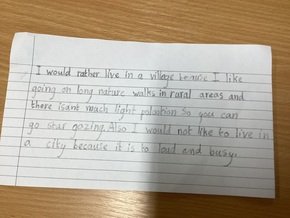 I would rather live in a village becuse I like
going on long nature walks in rural areas and
there isant much light polution So you can
go star gazing. Also I would not like to live in
a city because it is to loud and busy.